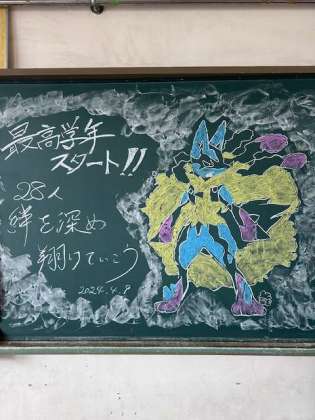 最高学年
スタート!!
28人
絆を深め
翔けていこう
2024.4.8